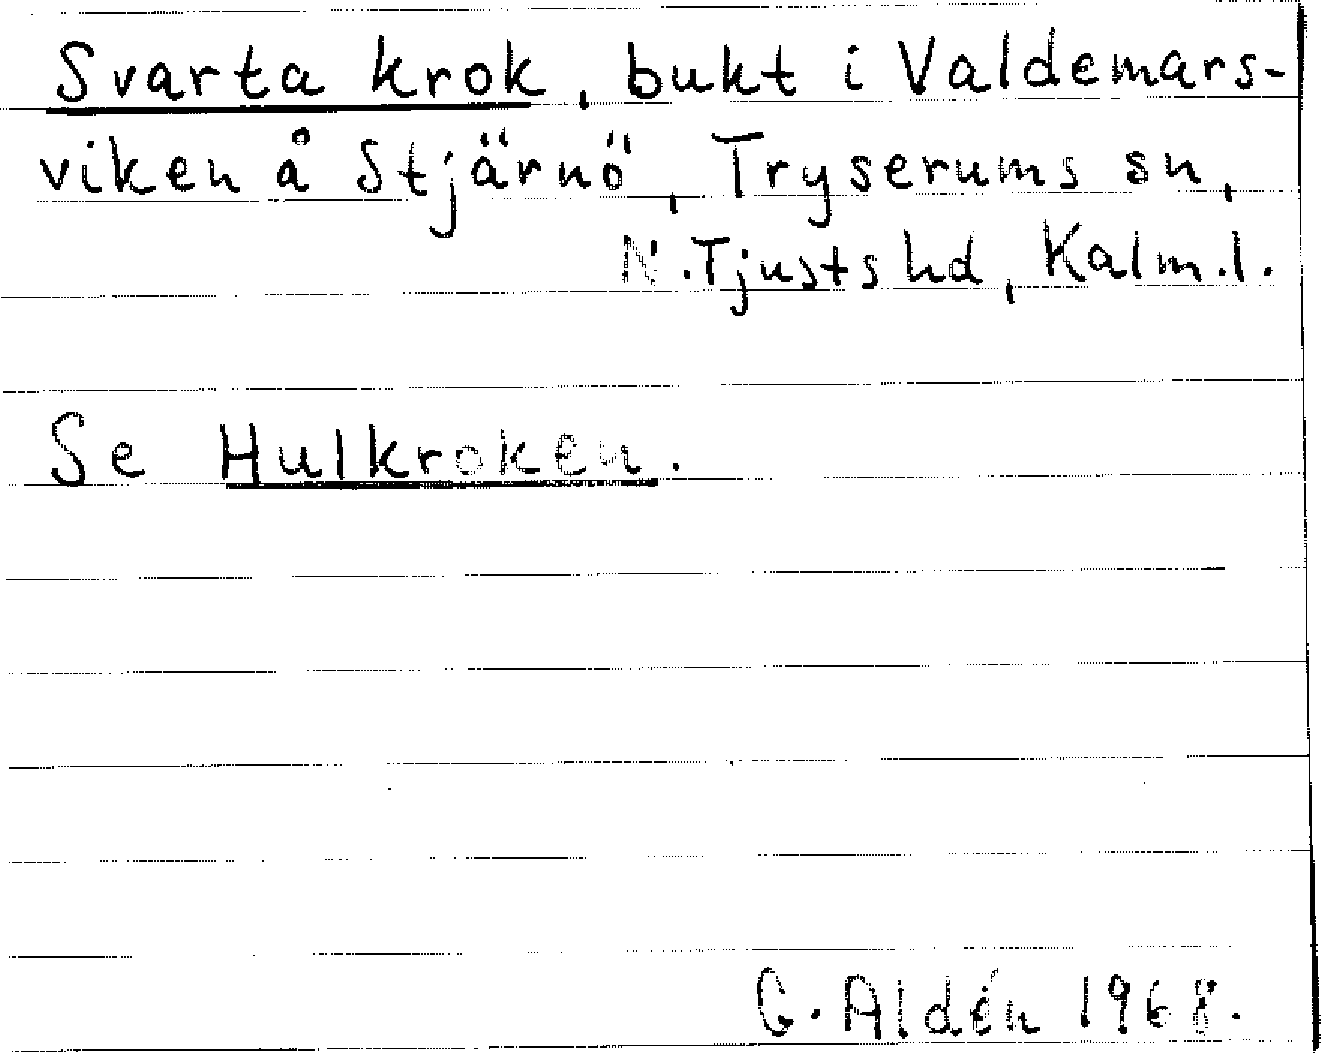 Svarta krok, bukt i Valdemars-
viken å Stjärnö, Tryserums sn,
N. Tjusts hd, Kalm.l.
Se Hulkroken.
G. Aldén 1968.